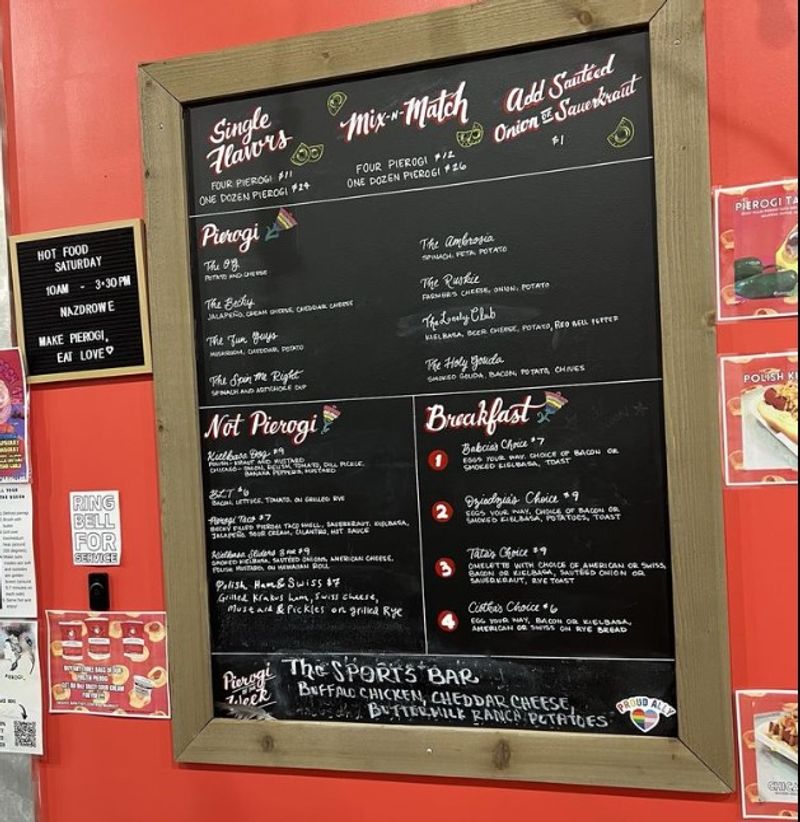 Single
Flavors
FOUR PIEROGI $11
ONE DOZEN PIEROGI $24
Mix-N-Match
FOUR PIEROGI $12
ONE DOZEN PIEROGI $26
Add Sautéed
Onion or Sauerkraut
$1
HOT FOOD
SATURDAY
10AM - 3:30PM
NAZDROWE
MAKE PIEROGI,
EAT LOVE♡
Pierogi
The OG
POTATO AND CHEESE
The Becky
JALAPEÑO, CREAM CHEESE, CHEDDAR CHEESE
The Fun Guys
MUSHROOM, CHEDDAR, POTATO
The Spin Me Right
SPINACH AND ARTICHOKE DIP
The Ambrosia
SPINACH, FETA, POTATO
The Ruskie
FARMER'S CHEESE, ONION, POTATO
The Lonely Club
KIELBASA, BEER CHEESE, POTATO, RED BELL PEPPER
The Holy Gouda
SMOKED GOUDA, BACON, POTATO, CHIVES
Not Pierogi
Kielbasa Dog $9
POLISH - KRAUT AND MUSTARD
CHICAGO - ONION, RELISH, TOMATO, DILL PICKLE,
BANANA PEPPERS, MUSTARD
BLT $6
BACON, LETTUCE, TOMATO, ON GRILLED RYE
Pierogi Taco $7
BECKY FILLED PIEROGI TACO SHELL, SAUERKRAUT, KIELBASA,
JALAPEÑO SOUR CREAM, CILANTRO, HOT SAUCE
Kielbasa Sliders 2 for $9
SMOKED KIELBASA, SAUTÉED ONIONS, AMERICAN CHEESE,
POLISH MUSTARD, ON HAWAIIAN ROLL
Polish Ham & Swiss $7
Grilled Krakus ham, swiss cheese,
Mustard & Pickles on grilled Rye
Breakfast
1 Babcia's Choice $7
EGGS YOUR WAY, CHOICE OF BACON OR
SMOKED KIELBASA, TOAST
2 Dziadzia's Choice $9
EGGS YOUR WAY, CHOICE OF BACON OR
SMOKED KIELBASA, POTATOES, TOAST
3 Tata's Choice $9
OMELETTE WITH CHOICE OF AMERICAN OR SWISS,
BACON OR KIELBASA, SAUTÉED ONION OR
SAUERKRAUT, RYE TOAST
4 Ciotka's Choice $6
EGG YOUR WAY, BACON OR KIELBASA,
AMERICAN OR SWISS ON RYE BREAD
Pierogi
of the
Week
The SPORTS BAR
BUFFALO CHICKEN, CHEDDAR CHEESE,
BUTTERMILK RANCH POTATOES
PROUD ALLY
RING
BELL
FOR
SERVICE
PIEROGI TA
POLISH K
CHIC